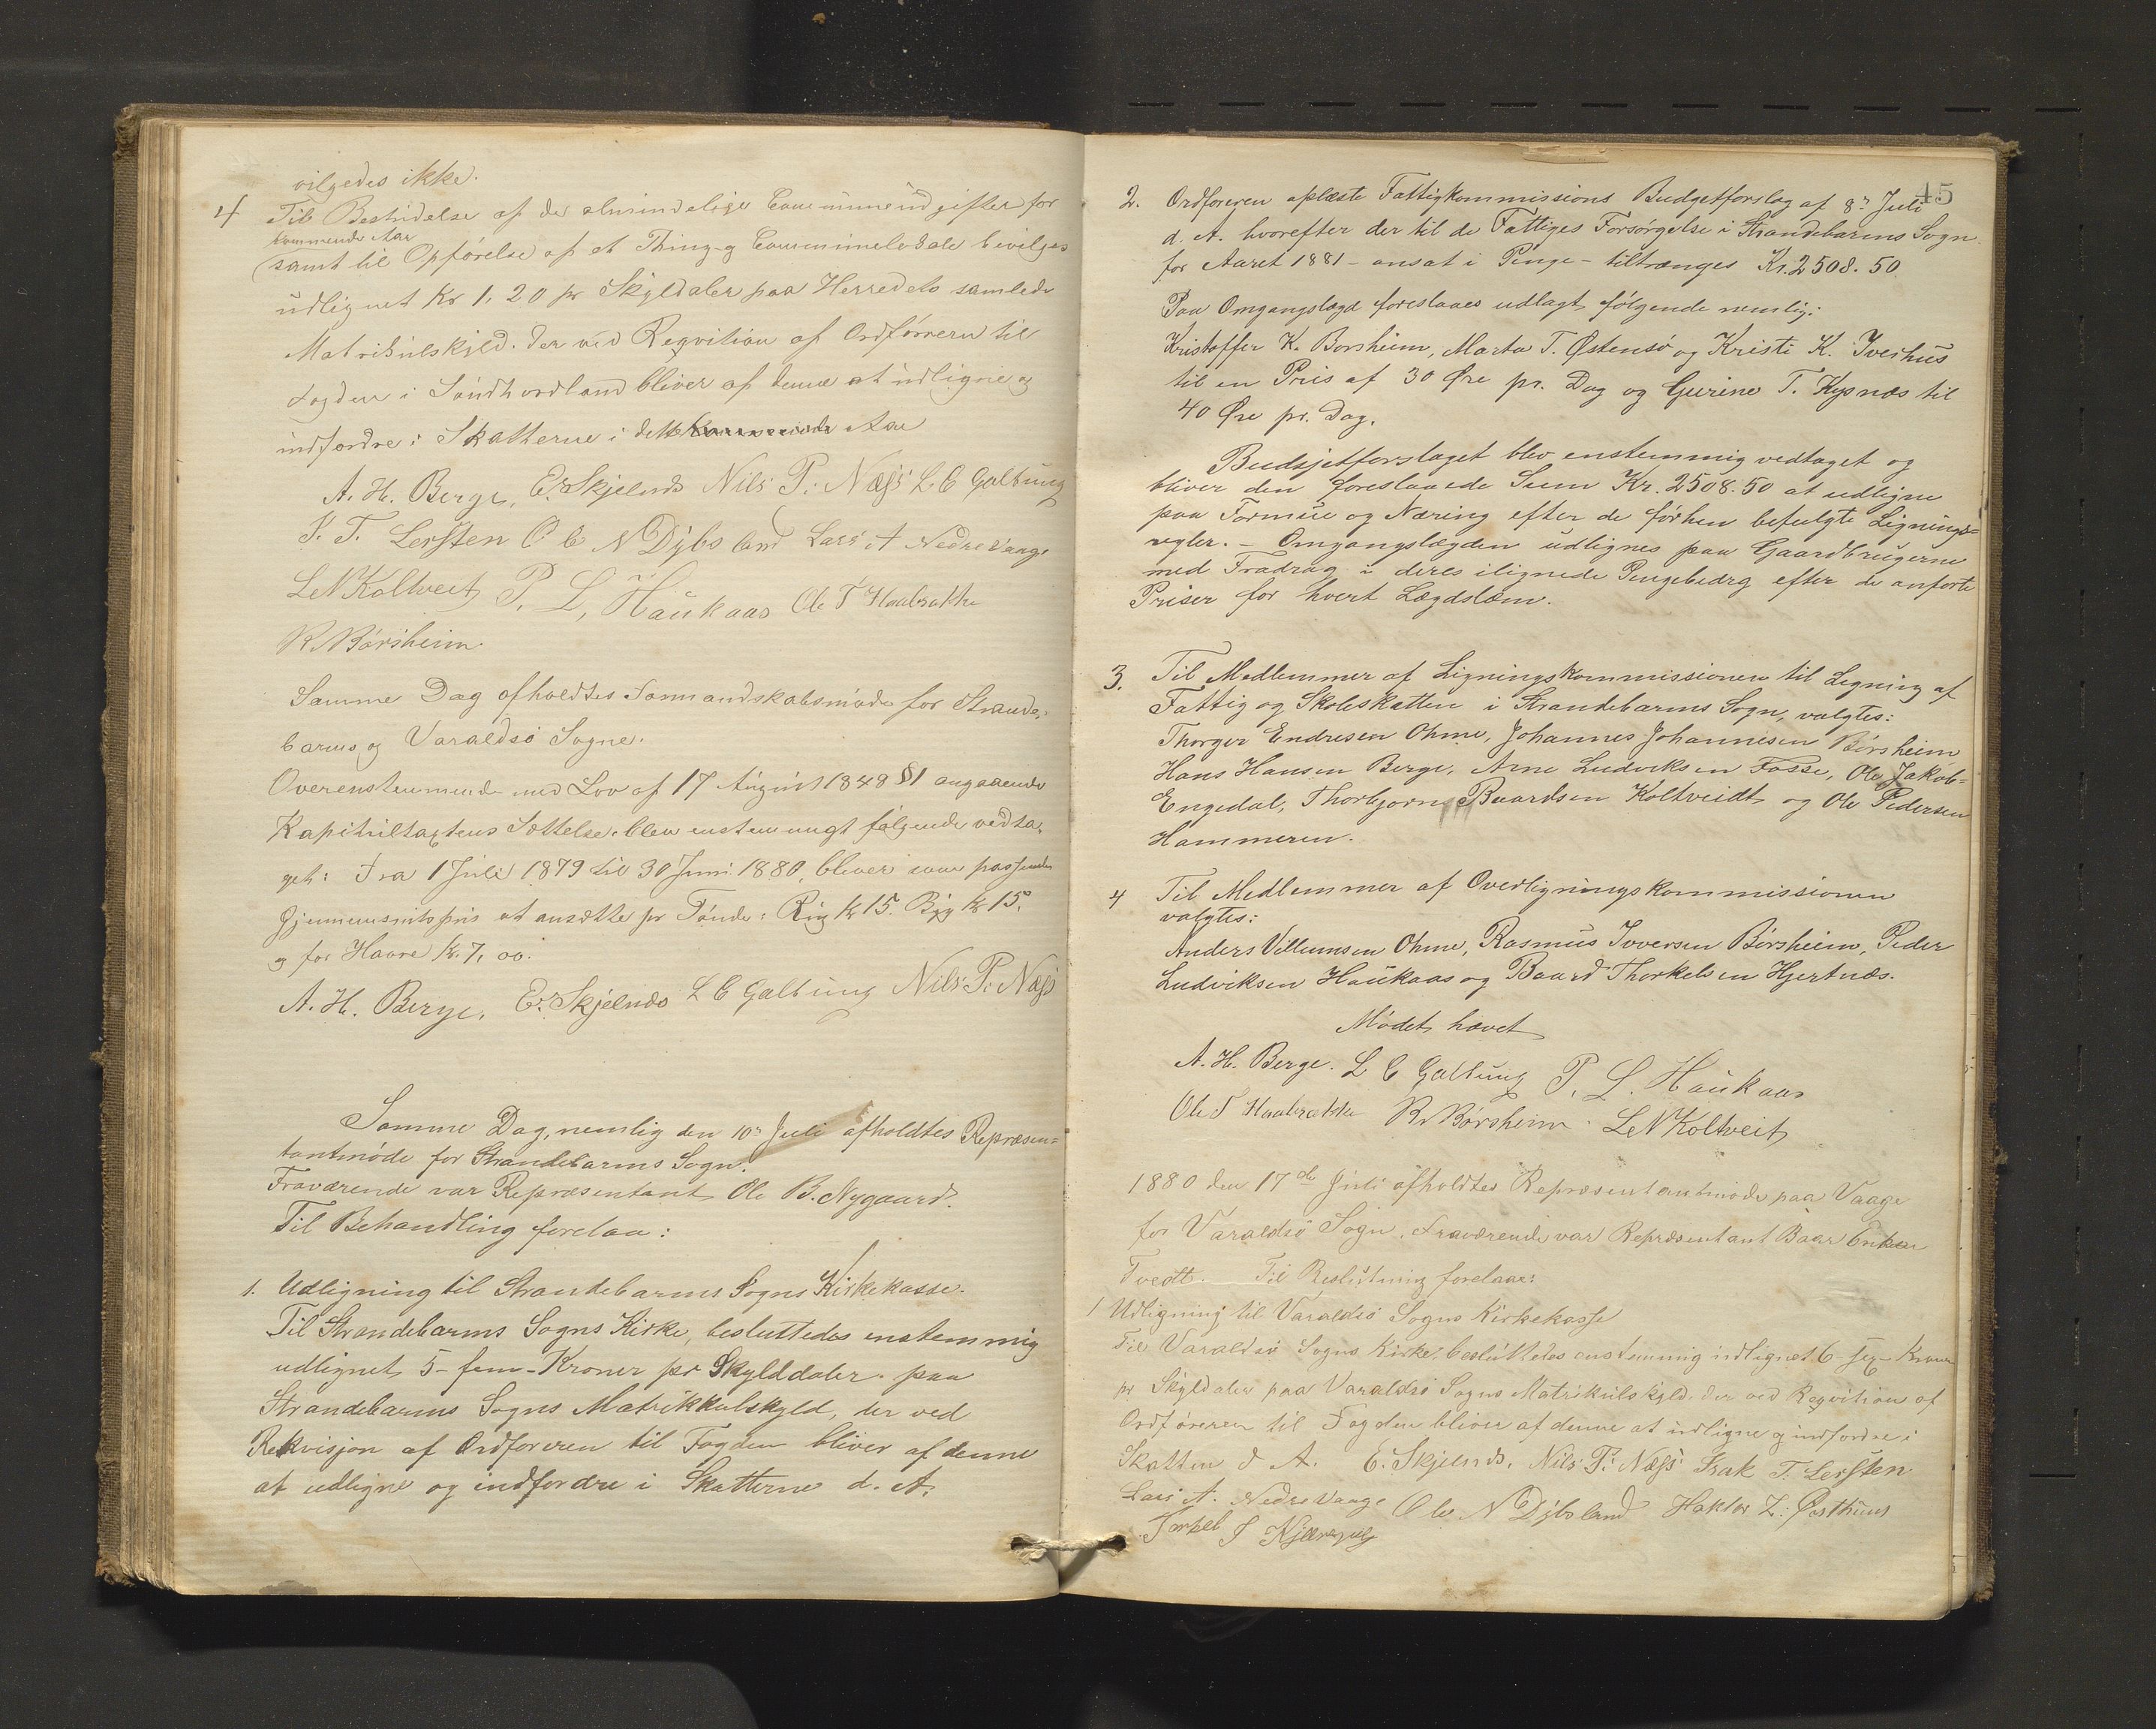 vilgedes ikke.
4 Til Bestridelse af de almindelige Communeudgifter for
kommende Aar
samt til Opførelse af et Thing- og Communelokale bevilges
udlignet Kr 1,20 pr Skyldaler paa Herredets samlede
Matrikulskyld. der ved Reqvition af Ordføreren til
Fogden i Søndhordland bliver af denne at udligne og
indfordre i Skatterne i dette kommende Aar
A. H. Berge, E. Skjelnæs Nils P. Næss L. C Galtung
I. T. Lersten O le N Dybsland Lars A Nedrevaage
L N Koltveit P. L, Haukaas Ole T Haabrække
R Børsheim.
Samme Dag afholdtes Formandskabsmøde for Strande-
barms og Varaldsø Sogne.
Overenstemmende med Lov af 17 August 1848 §1 angaaende
Kapitultaxtens Sættelse. blev enstemmigt følgende vedta-
get: Fra 1 Juli 1879 til 30 Juni 1880, bliver som passende
Gjennemsnitspris at ansætte pr Tønde: Rug kr 15. Byg kr 15,
og for Havre kr. 7,00.
A. H. Berge, E. Skjelnæs L C Galtung Nils. P. Næss
Samme Dag, nemlig den 10de Juli afholdtes Repræsen-
tantmøde for Strandebarms Sogn.
Fraværende var Repræsentant Ole B. Nygaard.
Til Behandling forelaa:
1. Udligning til Strandebarms Sogns Kirkekasse.
Til Strandebarms Sogns Kirke, besluttedes enstemmig
udlignet 5 - fem - Kroner pr Skylddaler. paa
Strandebarms Sogns Matrikkulskyld, der ved
Rekvisjon af Ordføreren til Fogden bliver af denne
at udligne og indfordre i Skatterne d. A.
45
2. Ordføreren oplæste Fattigkommissions Budgetforslag af 8de Juli
d. A. hvorefter der til de Fattiges Forsørgelse i Strandebarms Sogn
for Aaret 1881 - ansat i Penge - tiltrænges Kr. 2508.50
Paa Omgangslægd foreslaaes udlagt følgende nemlig:
Kristoffer K. Borsheim, Marta T. Østensø og Kristi K. Tveihus
til en Pris af 30 Øre pr. Dag og Gurine T. Kysnæs til
40 Øre pr. Dag.
Budsjetforslaget blev enstemmig vedtaget og
bliver den foreslaaede Sum Kr. 2508.50 at udligne
paa Formue og Næring efter de førhen befulgte Lignings-
regler. - Omgangslægden udlignes paa Gaardbrugerne
med Fradrag i deres ilignede Pengebedrg efter de anførte
Priser for hvert Lægdslem.
3. Til Medlemmer af Ligningskommissionen til Ligning af
Fattig og Skoleskatten i Strandebarms Sogn, valgtes:
Thorger Endresen Ohme, Johannes Johannesen Børsheim
Hans Hansen Berge, Arne Ludviksen Fosse, Ole Jakob-
Engedal, Thorbjørn Baardsen Koltveidt og Ole Pedersen
Hammeren.
4 Til Medlemmer af Overligningskommissionen
valgtes:
Anders Villumsen Ohme, Rasmus Iversen Børsheim, Peder
Ludviksen Haukaas og Baard Thorkelsen Hjertnæs.
Mødet hævet
A. H. Berge. L C Galtung P. L. Haukaas
Ole T Haabrække R Børsheim. L N Koltveit
1880 den 17de Juli afholdtes Repræsentantmøde paa Vaage
for Varaldsø Sogn. Fraværende var Repræsentant Baar
Tvedt. Til Beslutning forelaae:
1 Udligning til Varaldsø Sogns Kirkekasse
Til Varaldsø Sogns Kirke besluttedes enstemmig udlignet 6 - sex - Kroner
pr Skyldaler paa Varaldsø Sogns Matrikulskyld. der ved Reqvition af
Ordføreren til Fogden bliver af denne at udligne og indfordre i
Skatten d A. E. Skjelnæs. Nils P. Næss Isak T. Lersten
Lars A. Nedrevaage Ole N Dybsland Haktor L. Østhuus
Torkel